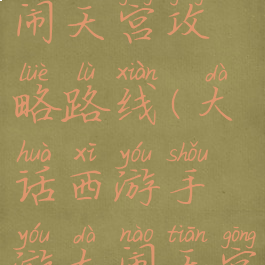 闹天宫攻
lüè lù xiàn dà
略路线(大
huà xī yóu shǒu
话西游手
yóu dà nào tiān gōng
游大闹天宫